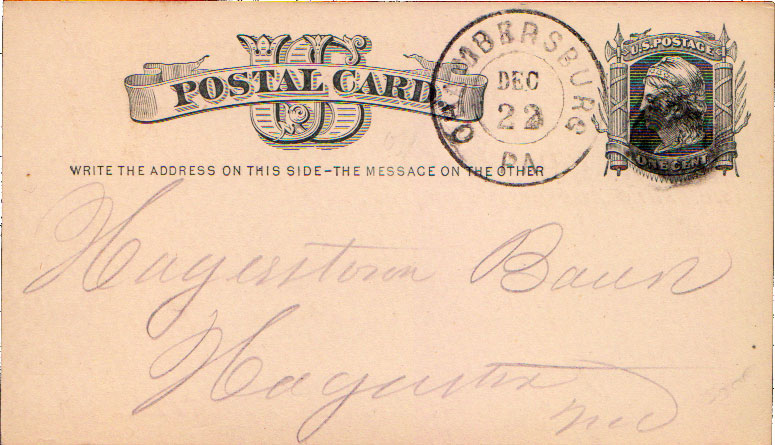 US
POSTAL CARD
CHAMBERSBURG
DEC
22
PA.
U.S. POSTAGE
ONE CENT
WRITE THE ADDRESS ON THIS SIDE-THE MESSAGE ON THE OTHER
Hagerstown Bank
Hagerstn
Md